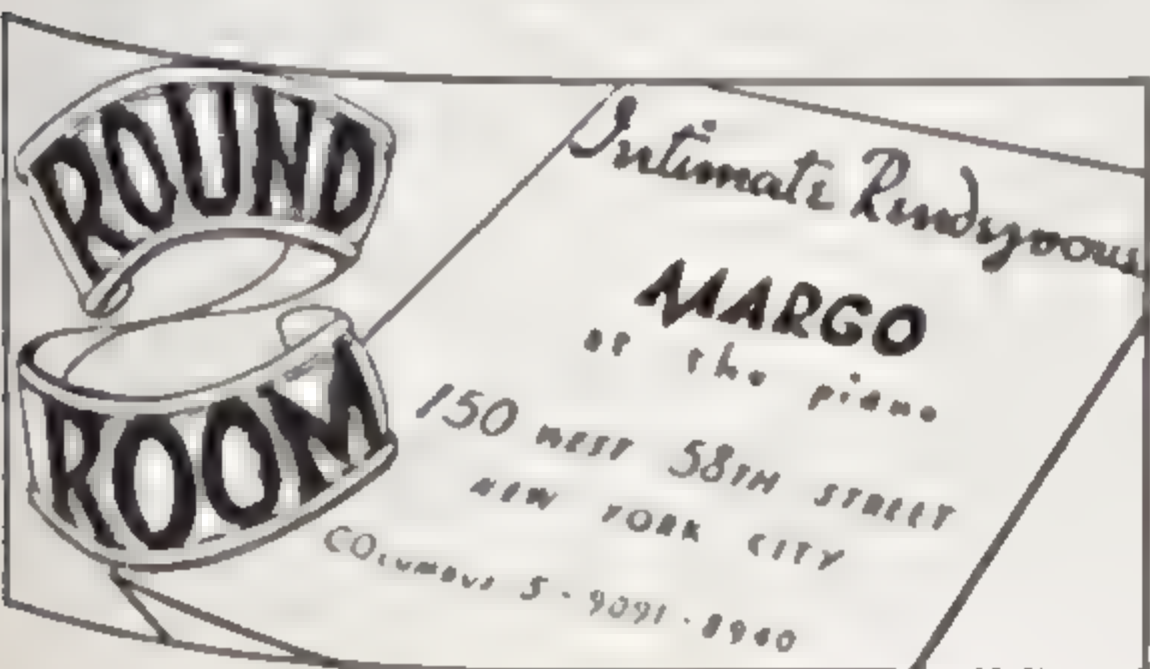 ROUND
ROOM
Intimate Rendezvous
MARGO
at the piano
150 WEST 58TH STREET
NEW YORK CITY
COlumbus 5-9091-8940